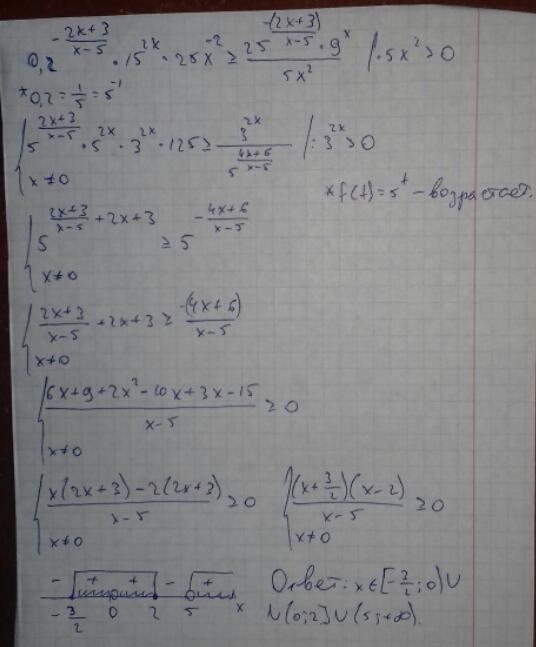 0,2^{-\frac{2x+3}{x-5}} · 15^{2x} · 25x^{-2} ≥ \frac{25^{-\frac{(2x+3)}{x-5}} · 9^x}{5x^2} | · 5x^2 > 0
*0,2 = \frac{1}{5} = 5^{-1}
{ 5^{\frac{2x+3}{x-5}} · 5^{2x} · 3^{2x} · 125 ≥ \frac{3^{2x}}{5^{\frac{4x+6}{x-5}}} | : 3^{2x} > 0
x ≠ 0
* f(t) = 5^t - возрастает.
{ 5^{\frac{2x+3}{x-5} + 2x + 3} ≥ 5^{-\frac{4x+6}{x-5}}
x ≠ 0
{ \frac{2x+3}{x-5} + 2x + 3 ≥ \frac{-(4x+6)}{x-5}
x ≠ 0
{ \frac{6x+9+2x^2-10x+3x-15}{x-5} ≥ 0
x ≠ 0
{ \frac{x(2x+3)-2(2x+3)}{x-5} ≥ 0 { \frac{(x+\frac{3}{2})(x-2)}{x-5} ≥ 0
x ≠ 0 x ≠ 0
- + + - +
-\frac{3}{2} 0 2 5 x
Ответ: x ∈ [-\frac{3}{2}; 0) ∪
∪ (0; 2] ∪ (5; +∞).